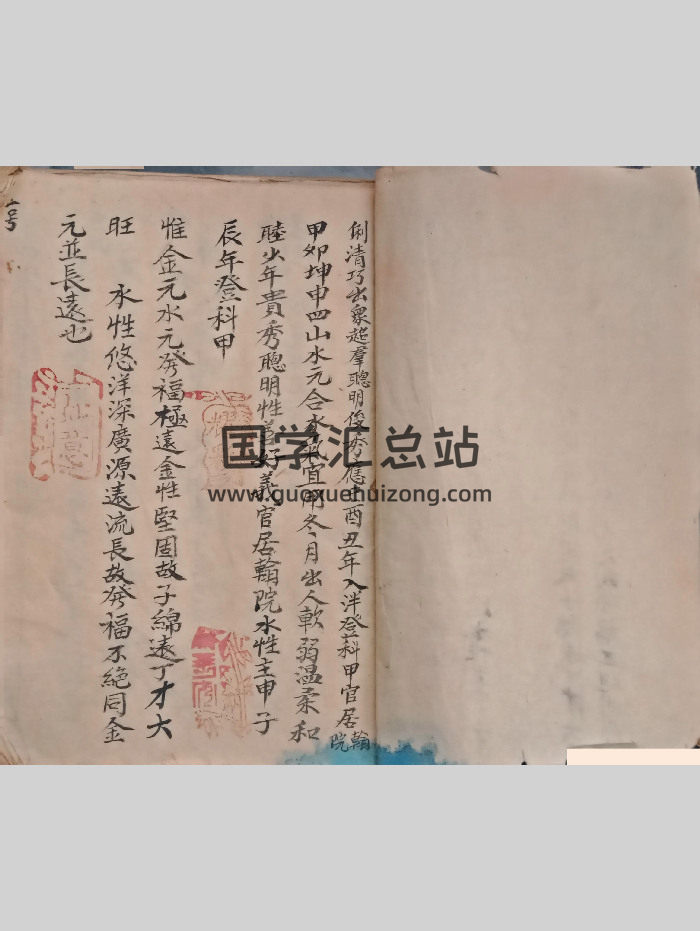 俐清巧出衆起羣聰明俊秀應巳酉丑年入泮登科甲官居翰院
甲卯坤申四山水元合水氣宜用冬月出人軟弱温柔和
睦少年貴秀聰明性善好義官居翰院水性主申子
辰年登科甲
惟金元水元發福極遠金性堅固故子綿遠丁才大
旺　水性悠洋深廣源遠流長故發福不絶同金
元並長遠也
国学汇总站
www.guoxuehuizong.com